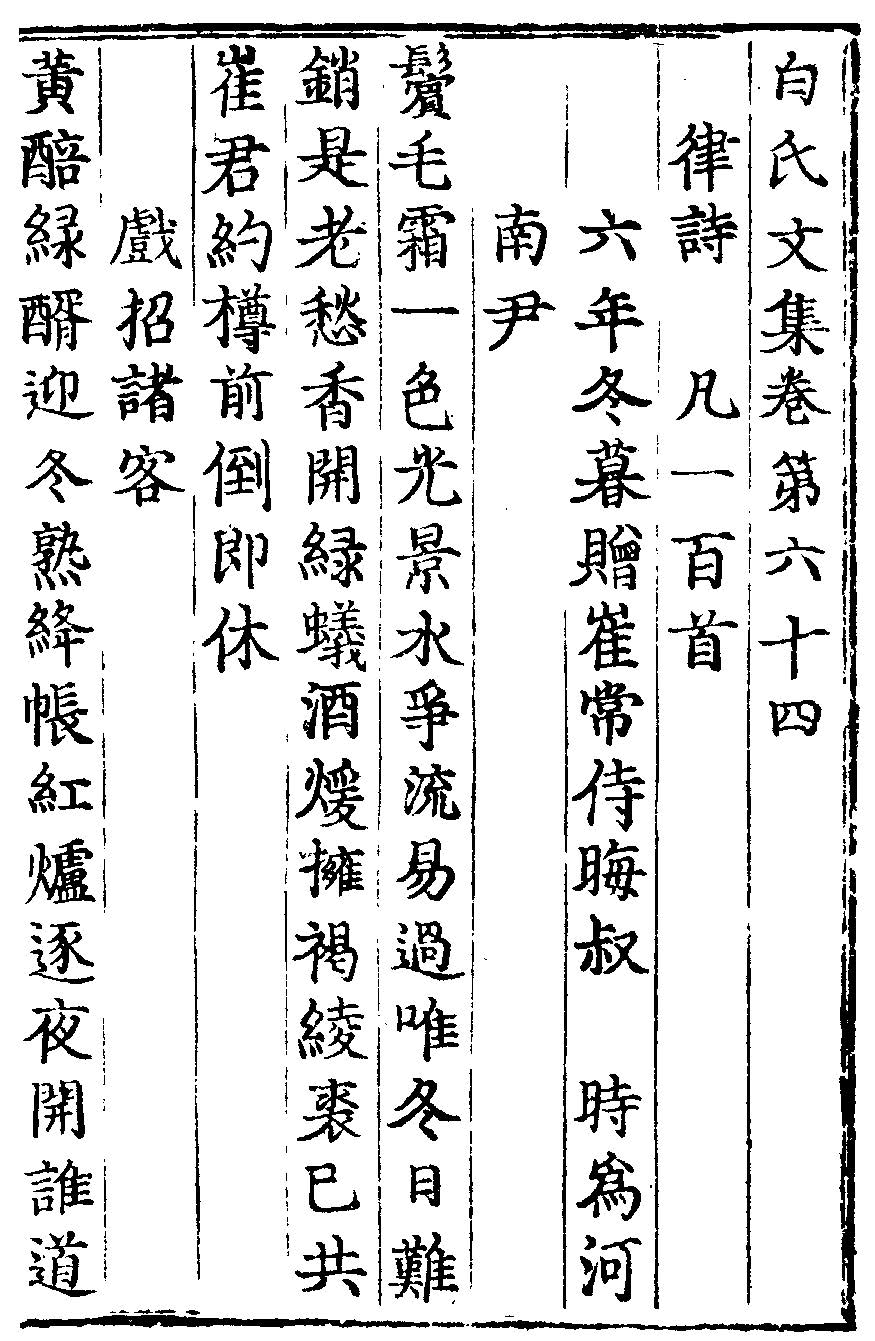 白氏文集卷第六十四
律詩　凡一百首
六年冬暮贈崔常侍晦叔　時爲河
南尹
鬢毛霜一色光景水爭流易過唯冬日難
銷是老愁香開緑蟻酒煖擁褐綾裘已共
崔君約樽前倒即休
戲招諸客
黄醅緑醑迎冬熟絳帳紅爐逐夜開誰道